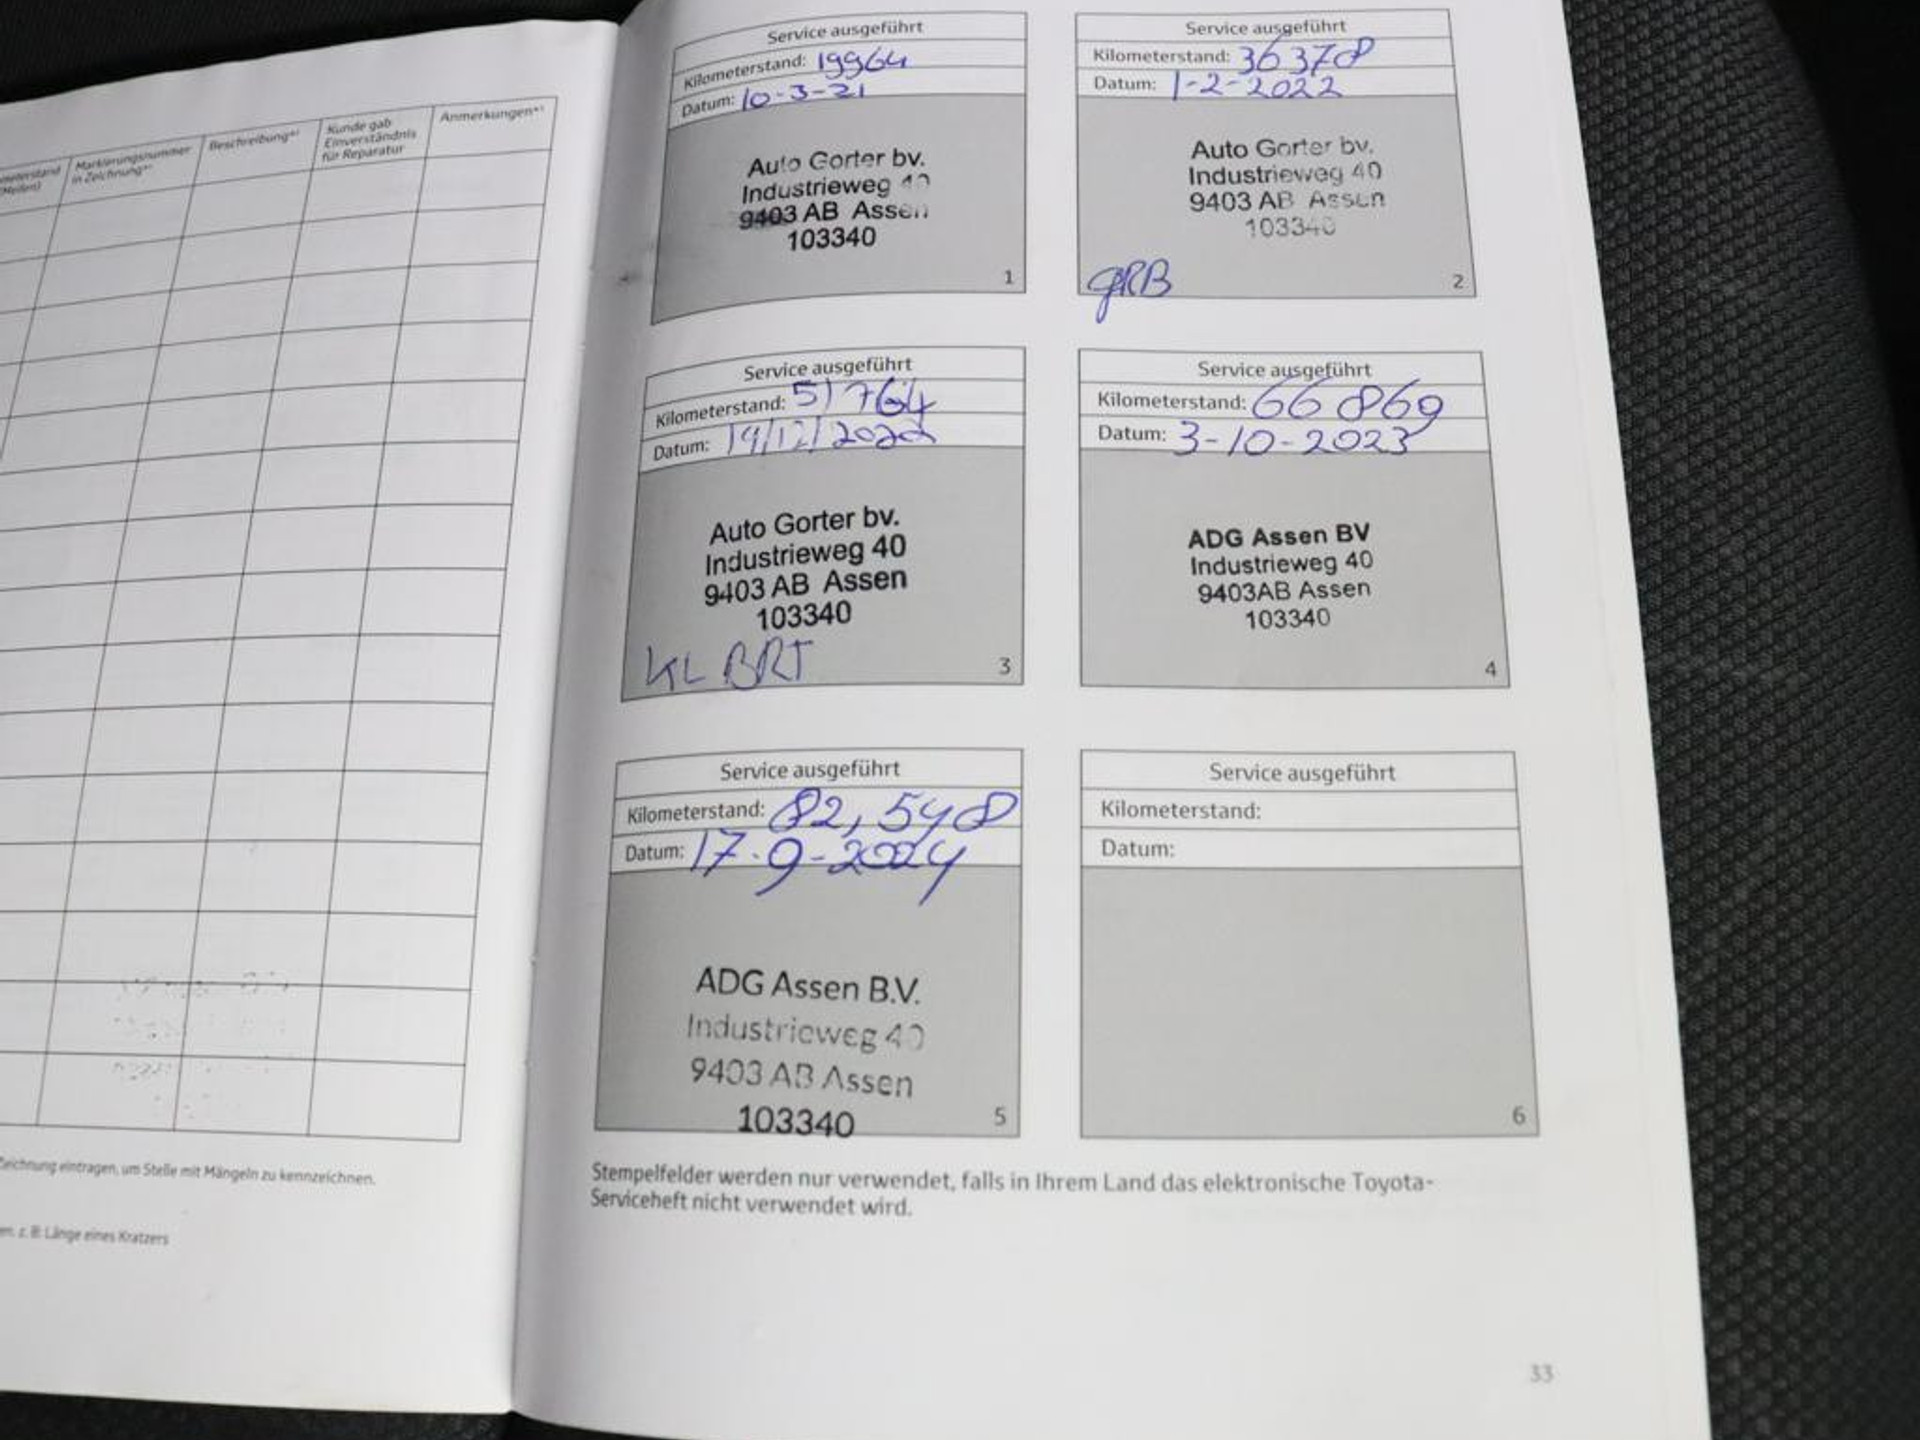 Markierungsnummer
in Zeichnung*¹
Beschreibung*²
Kunde gab
Einverständnis
für Reparatur
Anmerkungen*³
Zeichnung eintragen, um Stelle mit Mängeln zu kennzeichnen.
z. B: Länge eines Kratzers
Service ausgeführt
Kilometerstand: 19964
Datum: 10-3-21
Auto Gorter bv.
Industrieweg 40
9403 AB Assen
103340
1
Service ausgeführt
Kilometerstand: 36378
Datum: 1-2-2022
Auto Gorter bv.
Industrieweg 40
9403 AB Assen
103340
GRB
2
Service ausgeführt
Kilometerstand: 51764
Datum: 19/12/2022
Auto Gorter bv.
Industrieweg 40
9403 AB Assen
103340
KL BRT
3
Service ausgeführt
Kilometerstand: 66869
Datum: 3-10-2023
ADG Assen BV
Industrieweg 40
9403AB Assen
103340
4
Service ausgeführt
Kilometerstand: 82,548
Datum: 17-9-2024
ADG Assen B.V.
Industrieweg 40
9403 AB Assen
103340
5
Service ausgeführt
Kilometerstand:
Datum:
6
Stempelfelder werden nur verwendet, falls in Ihrem Land das elektronische Toyota-
Serviceheft nicht verwendet wird.
33